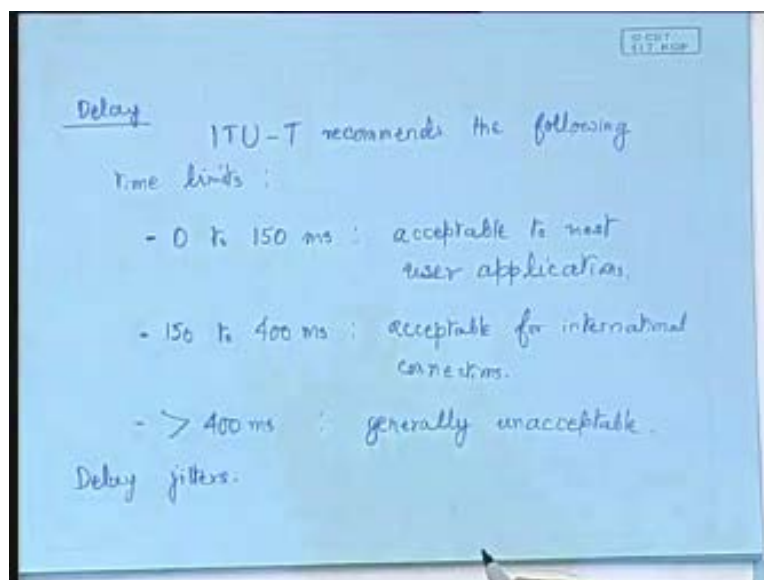 © CET
I.I.T. KGP
Delay
ITU-T recommends the following
time limits :
- 0 to 150 ms : acceptable to most
user application.
- 150 to 400 ms : acceptable for international
connections.
- > 400 ms : generally unacceptable.
Delay jitters.